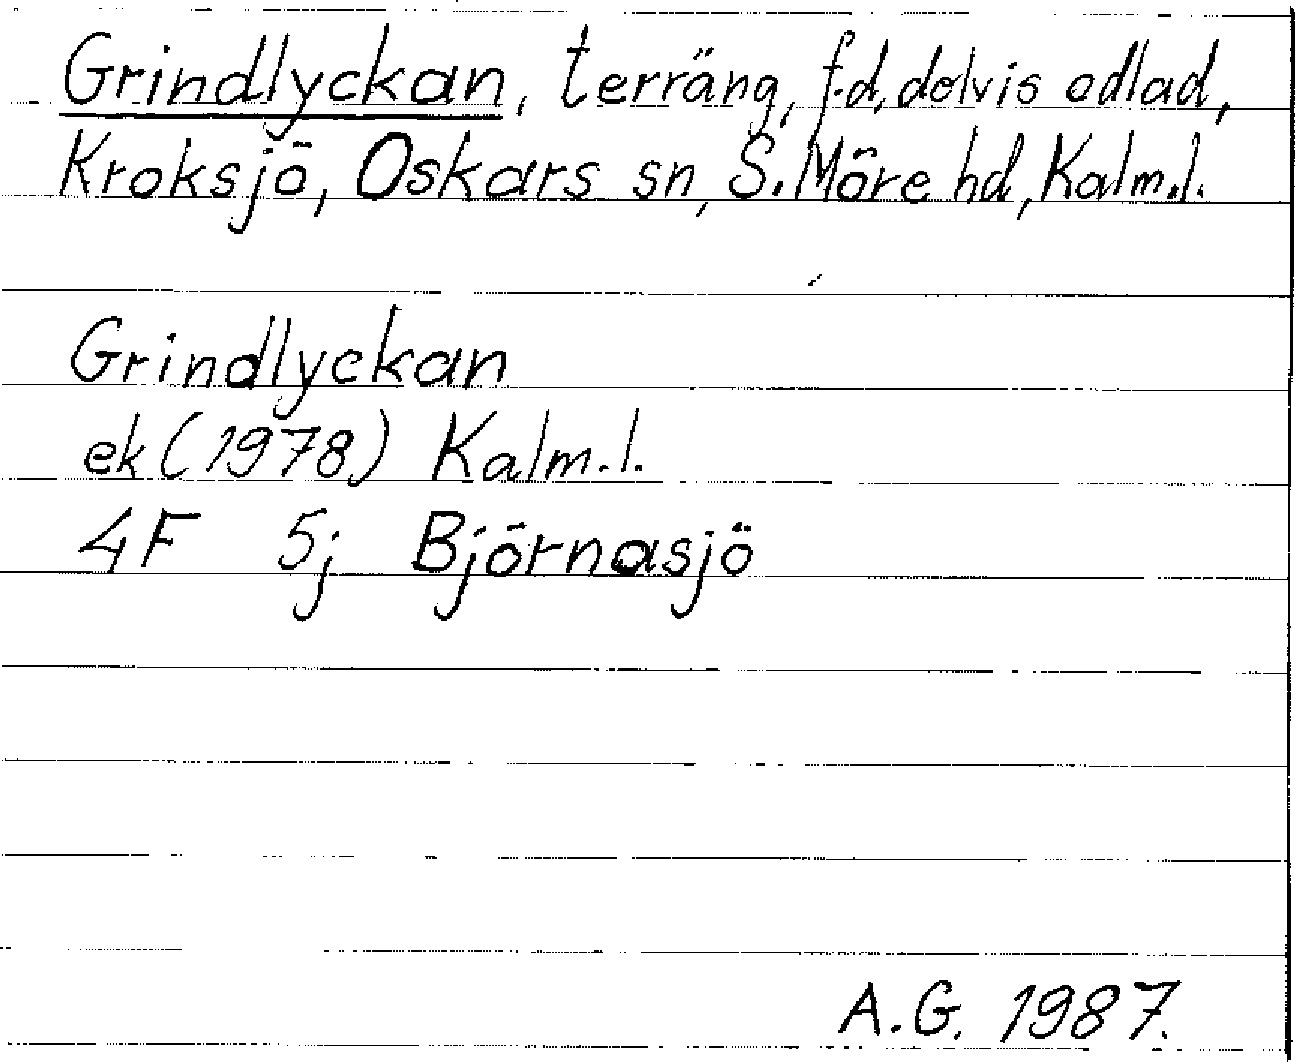 Grindlyckan, terräng, f.d. delvis odlad,
Kroksjö, Oskars sn, S. Möre hd, Kalm.l.
Grindlyckan
ek (1978) Kalm.l.
4F 5j Björnasjö
A.G. 1987.